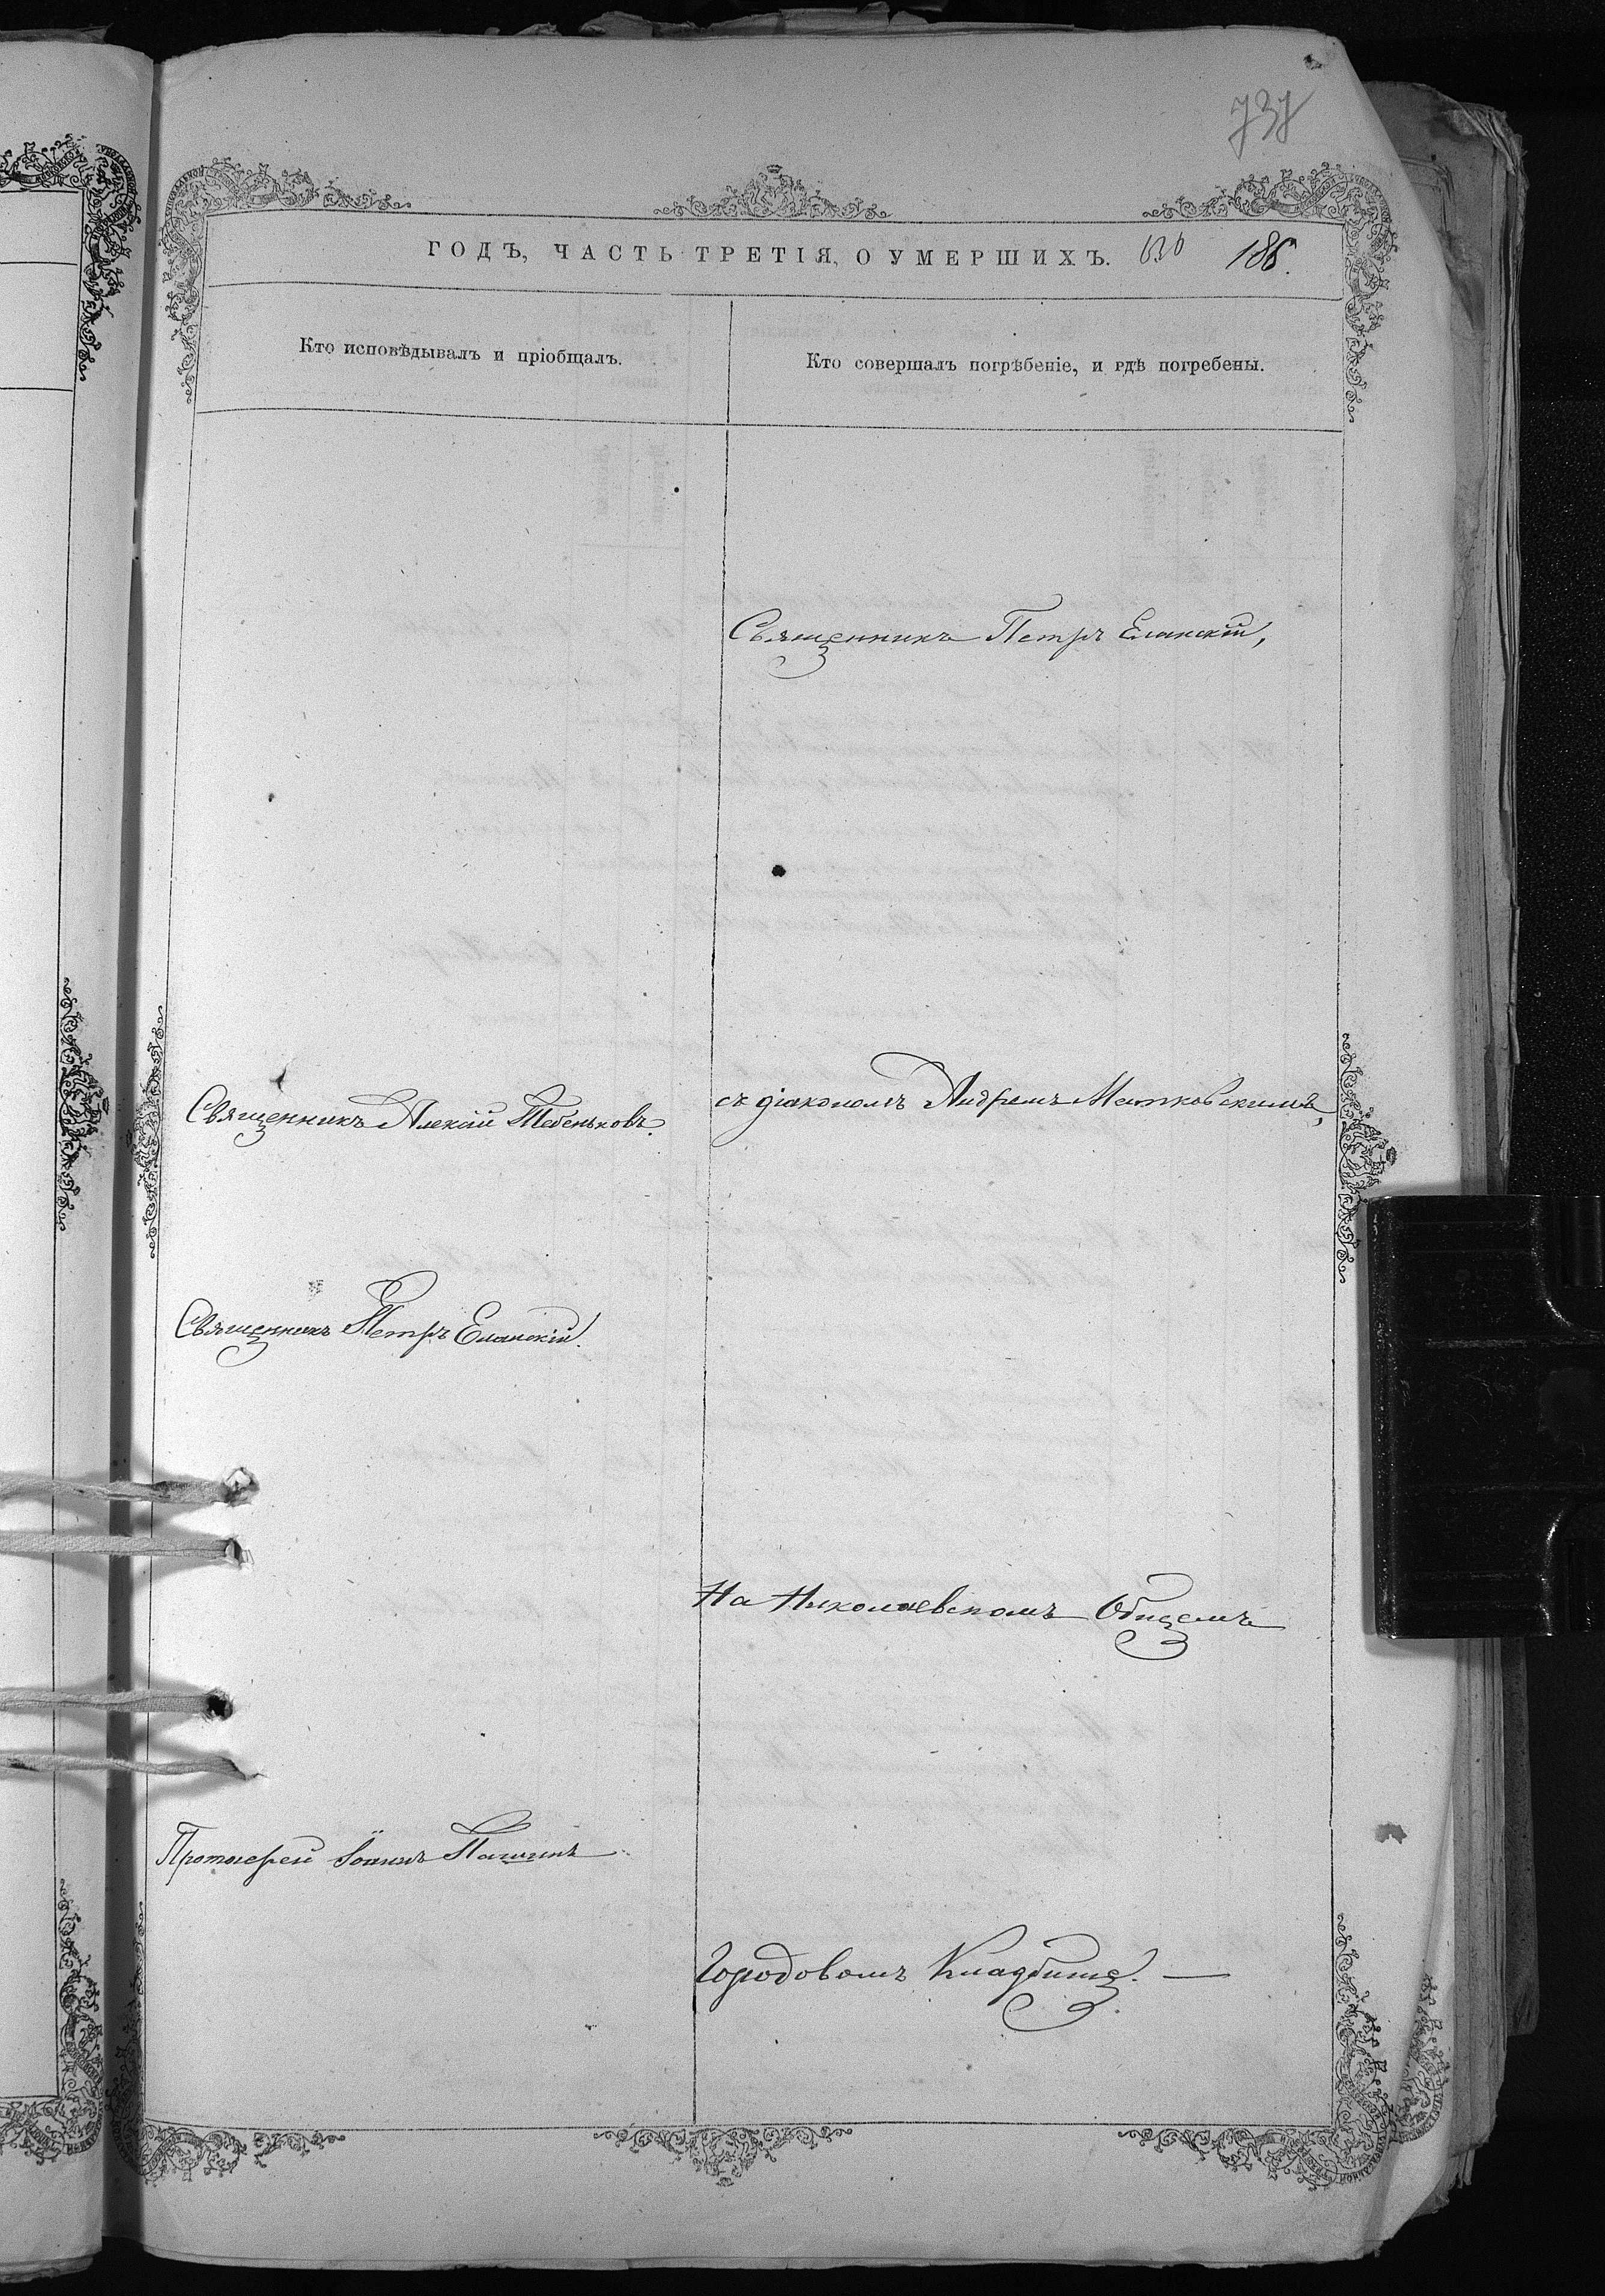 737
ГОДЪ, ЧАСТЬ ТРЕТІЯ, О УМЕРШИХЪ. 186.
Кто исповѣдывалъ и пріобщалъ.
Кто совершалъ погрѣбеніе, и гдѣ погребены.
Священникъ Петръ Еланскій,
Священникъ Алексій Тебеньковъ.
съ діакономъ Андреемъ Матковскимъ,
Священникъ Петръ Еланскій.
На Николаевскомъ Общемъ
Протоіерей Іоаннъ Пашинъ
Городовомъ Кладбищѣ. —